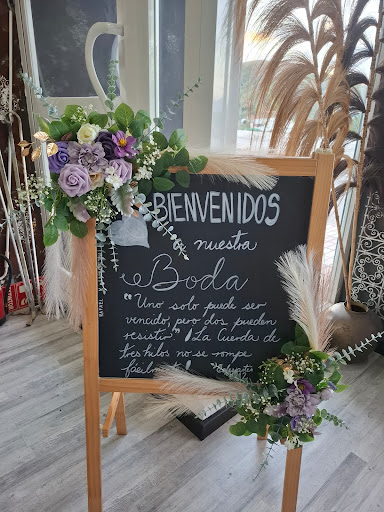 BIENVENIDOS
a nuestra
Boda
"Uno solo puede ser
vencido, pero dos pueden
resistir". ¡La Cuerda de
tres hilos no se rompe
fácilmente